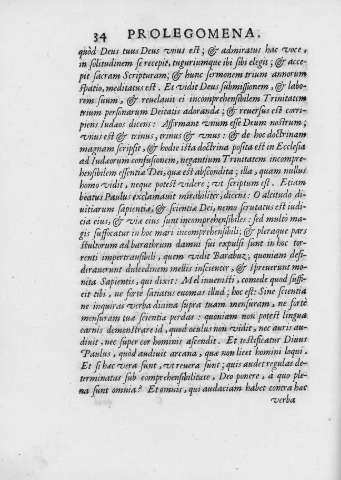 34 PROLEGOMENA.
quòd Deus tuus Deus vnus est; & admiratus hac voce,
in solitudinem se recepit, tuguriumque ibi sibi elegit; & acce-
pit sacram Scripturam; & hunc sermonem trium annorum
spatio, meditatus est. Et vidit Deus submissionem, & labo-
rem suum, & reuelauit ei incomprehensibilem Trinitatem
trium personarum Deitatis adoranda; & reuersus est corri-
piens Iudæos dicens: Affirmant verum esse Deum nostrum;
vnus est & trinus, trinus & vnus: & de hoc doctrinam
magnam scripsit, & hodie ista doctrina posita est in Ecclesia
ad Iudæorum confusionem, negantium Trinitatem incompre-
hensibilem essentiæ Dei, quæ est abscondita; illa, quam nullus
homo vidit, neque potest videre; vt scriptum est. Etiam
beatus Paulus exclamauit mirabiliter, dicens: O altitudo di-
uitiarum sapientiæ, & scientiæ Dei, nemo scrutatus est iudi-
cia eius, & viæ eius sunt incomprehensibiles: sed multo ma-
gis suffocatur in hoc mari incomprehensibili; & pleraque pars
stultorum ad barathrum damna sui expulsi sunt in hoc tor-
renti impertransibili, quem vidit Barabuz; quoniam desi-
derauerunt dulcedinem mellis inscienter, & spreuerunt mo-
nita Sapientis, qui dixit: Mel inuenisti, comede quod suffi-
cit tibi, ne fortè satiatus euomas illud; hoc est: Sine scientia
ne inquiras verba diuina supra tuam mensuram, ne fortè
mensuram tuæ scientiæ perdas: quoniam non potest lingua
carnis demonstrare id, quod oculus non vidit, nec auris au-
diuit, nec super cor hominis ascendit. Et testificatur Diuus
Paulus, quòd audiuit arcana, quæ non licet homini loqui.
Et si hæc vera sunt, vt reuera sunt; quis audet regulas de-
terminatas sub comprehensibilitate, Deo ponere, à quo ple-
na sunt omnia? Et omnis, qui audaciam habet contra hæc
verba